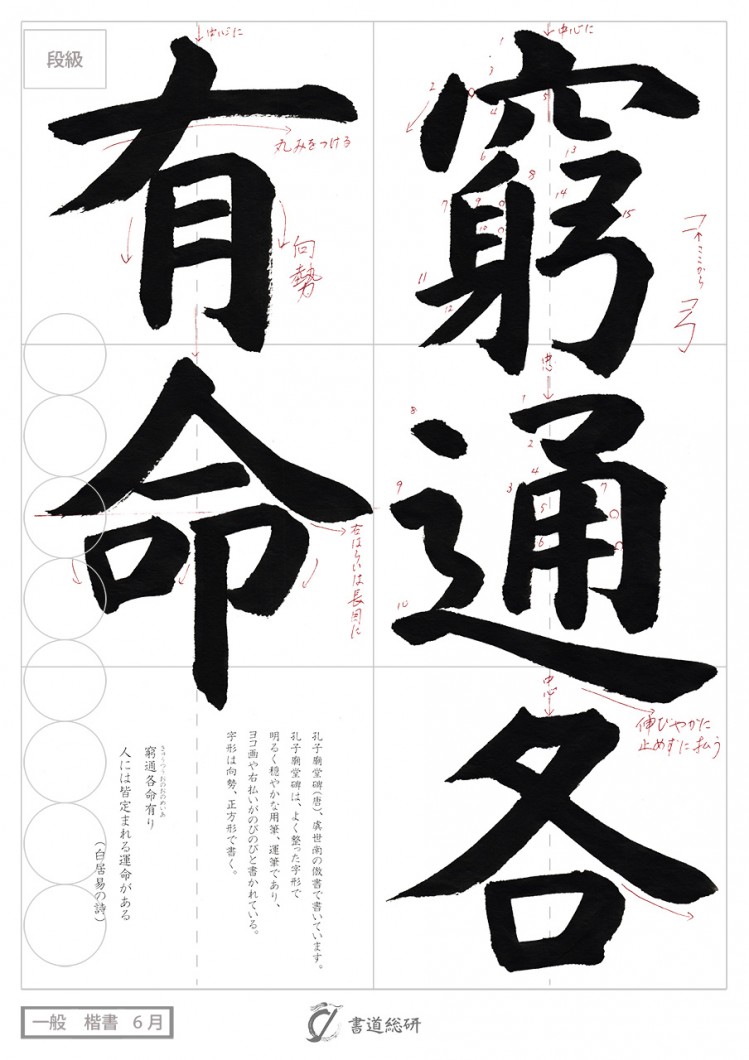 段級
窮通各
有命
中心に
1
2
3
4
5
6
7
8
9
10
11
12
13
14
15
ここから
中心
1
2
3
4
5
6
7
8
9
10
伸びやかに
止めずに払う
中心
中心に
丸みをつける
向勢
右はらいは長目に
孔子廟堂碑(唐)、虞世南の倣書で書いています。
孔子廟堂碑は、よく整った字形で
明るく穏やかな用筆、運筆であり、
ヨコ画や右払いがのびのびと書かれている。
字形は向勢、正方形で書く。
きゅうつうおのおのめいあ
窮通各命有り
人には皆定まれる運命がある
(白居易の詩)
一般 楷書 6月
書道総研